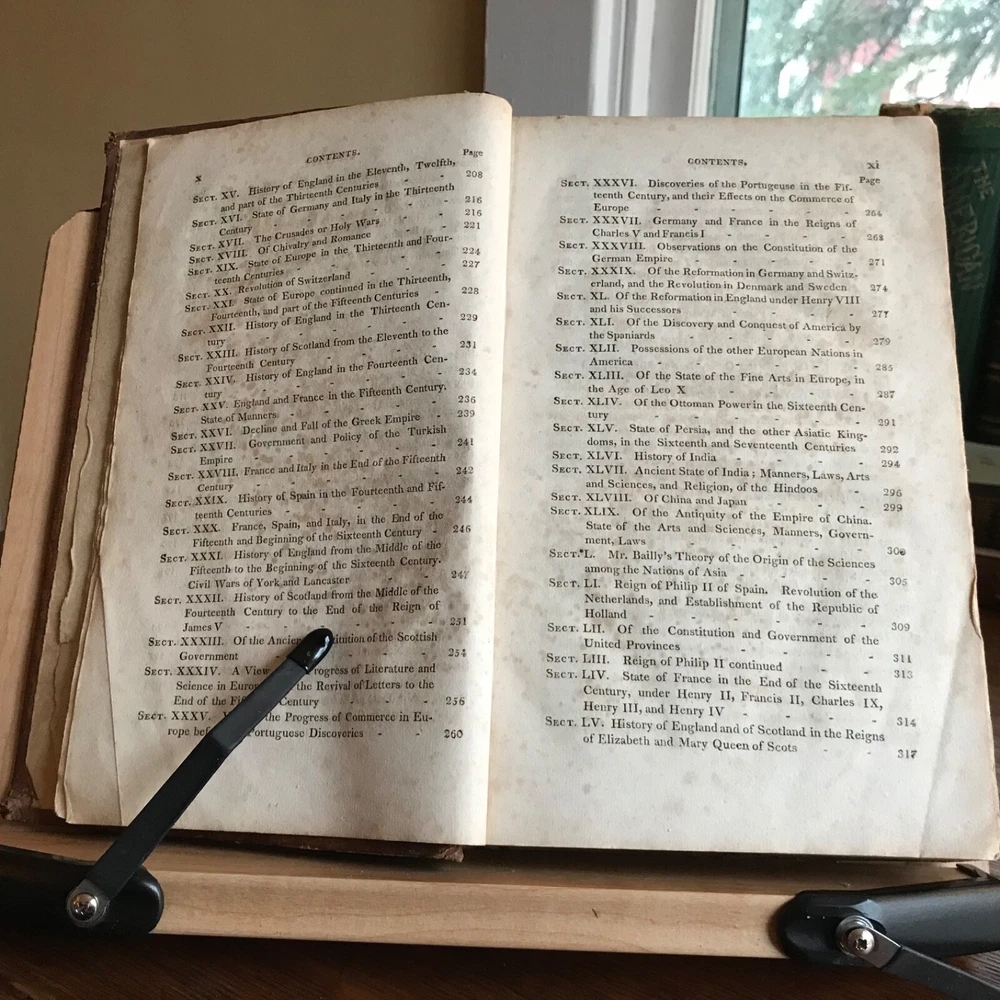 x
CONTENTS.
Page
SECT. XV. History of England in the Eleventh, Twelfth,
and part of the Thirteenth Centuries - - 208
SECT. XVI. State of Germany and Italy in the Thirteenth
Century - - - - - 216
SECT. XVII. The Crusades or Holy Wars - - 216
SECT. XVIII. Of Chivalry and Romance - - 221
SECT. XIX. State of Europe in the Thirteenth and Four-
teenth Centuries - - - - 224
SECT. XX. Revolution of Switzerland - - 227
SECT. XXI. State of Europe continued in the Thirteenth,
Fourteenth, and part of the Fifteenth Centuries - 228
SECT. XXII. History of England in the Thirteenth Cen-
tury - - - - - 229
SECT. XXIII. History of Scotland from the Eleventh to the
Fourteenth Century - - - - 231
SECT. XXIV. History of England in the Fourteenth Cen-
tury - - - - - 234
SECT. XXV. England and France in the Fifteenth Century.
State of Manners - - - - 236
SECT. XXVI. Decline and Fall of the Greek Empire - 239
SECT. XXVII. Government and Policy of the Turkish
Empire - - - - - 241
SECT. XXVIII. France and Italy in the End of the Fifteenth
Century - - - - - 242
SECT. XXIX. History of Spain in the Fourteenth and Fif-
teenth Centuries - - - - 244
SECT. XXX. France, Spain, and Italy, in the End of the
Fifteenth and Beginning of the Sixteenth Century - 246
SECT. XXXI. History of England from the Middle of the
Fifteenth to the Beginning of the Sixteenth Century.
Civil Wars of York and Lancaster - - 247
SECT. XXXII. History of Scotland from the Middle of the
Fourteenth Century to the End of the Reign of
James V - - - - - 251
SECT. XXXIII. Of the Ancien stitution of the Scottish
Government - - - - 254
SECT. XXXIV. A View rogress of Literature and
Science in Europ the Revival of Letters to the
End of the Fif Century - - - 256
SECT. XXXV. the Progress of Commerce in Eu-
rope bef Portuguese Discoveries - - 260
CONTENTS.
xi
Page
SECT. XXXVI. Discoveries of the Portugeuse in the Fif-
teenth Century, and their Effects on the Commerce of
Europe - - - - - 264
SECT. XXXVII. Germany and France in the Reigns of
Charles V and Francis I - - - - 268
SECT. XXXVIII. Observations on the Constitution of the
German Empire - - - - 271
SECT. XXXIX. Of the Reformation in Germany and Switz-
erland, and the Revolution in Denmark and Sweden 274
SECT. XL. Of the Reformation in England under Henry VIII
and his Successors - - - - 277
SECT. XLI. Of the Discovery and Conquest of America by
the Spaniards - - - - 279
SECT. XLII. Possessions of the other European Nations in
America - - - - - 285
SECT. XLIII. Of the State of the Fine Arts in Europe, in
the Age of Leo X - - - - 287
SECT. XLIV. Of the Ottoman Power in the Sixteenth Cen-
tury - - - - - 291
SECT. XLV. State of Persia, and the other Asiatic King-
doms, in the Sixteenth and Seventeenth Centuries 292
SECT. XLVI. History of India - - - 294
SECT. XLVII. Ancient State of India; Manners, Laws, Arts
and Sciences, and Religion, of the Hindoos - 296
SECT. XLVIII. Of China and Japan - - - 299
SECT. XLIX. Of the Antiquity of the Empire of China.
State of the Arts and Sciences, Manners, Govern-
ment, Laws - - - - - 300
SECT. L. Mr. Bailly's Theory of the Origin of the Sciences
among the Nations of Asia - - - - 305
SECT. LI. Reign of Philip II of Spain. Revolution of the
Netherlands, and Establishment of the Republic of
Holland - - - - - 309
SECT. LII. Of the Constitution and Government of the
United Provinces - - - - 311
SECT. LIII. Reign of Philip II continued - - 313
SECT. LIV. State of France in the End of the Sixteenth
Century, under Henry II, Francis II, Charles IX,
Henry III, and Henry IV - - - - 314
SECT. LV. History of England and of Scotland in the Reigns
of Elizabeth and Mary Queen of Scots - - 317
THE